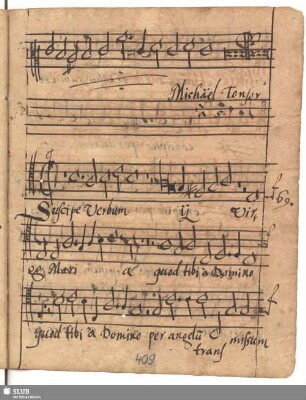 Michäel Tonsor
à 5
Suscipe Verbum ij Vir,
69.
go Mari a quod tibi à Domino
quod tibi à Domino per angelū
trans missum
409
SLUB